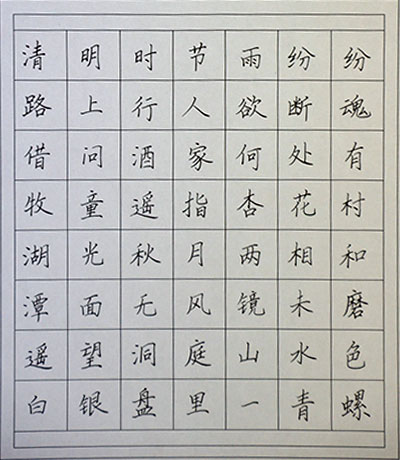 清明时节雨纷纷
路上行人欲断魂
借问酒家何处有
牧童遥指杏花村
湖光秋月两相和
潭面无风镜未磨
遥望洞庭山水色
白银盘里一青螺